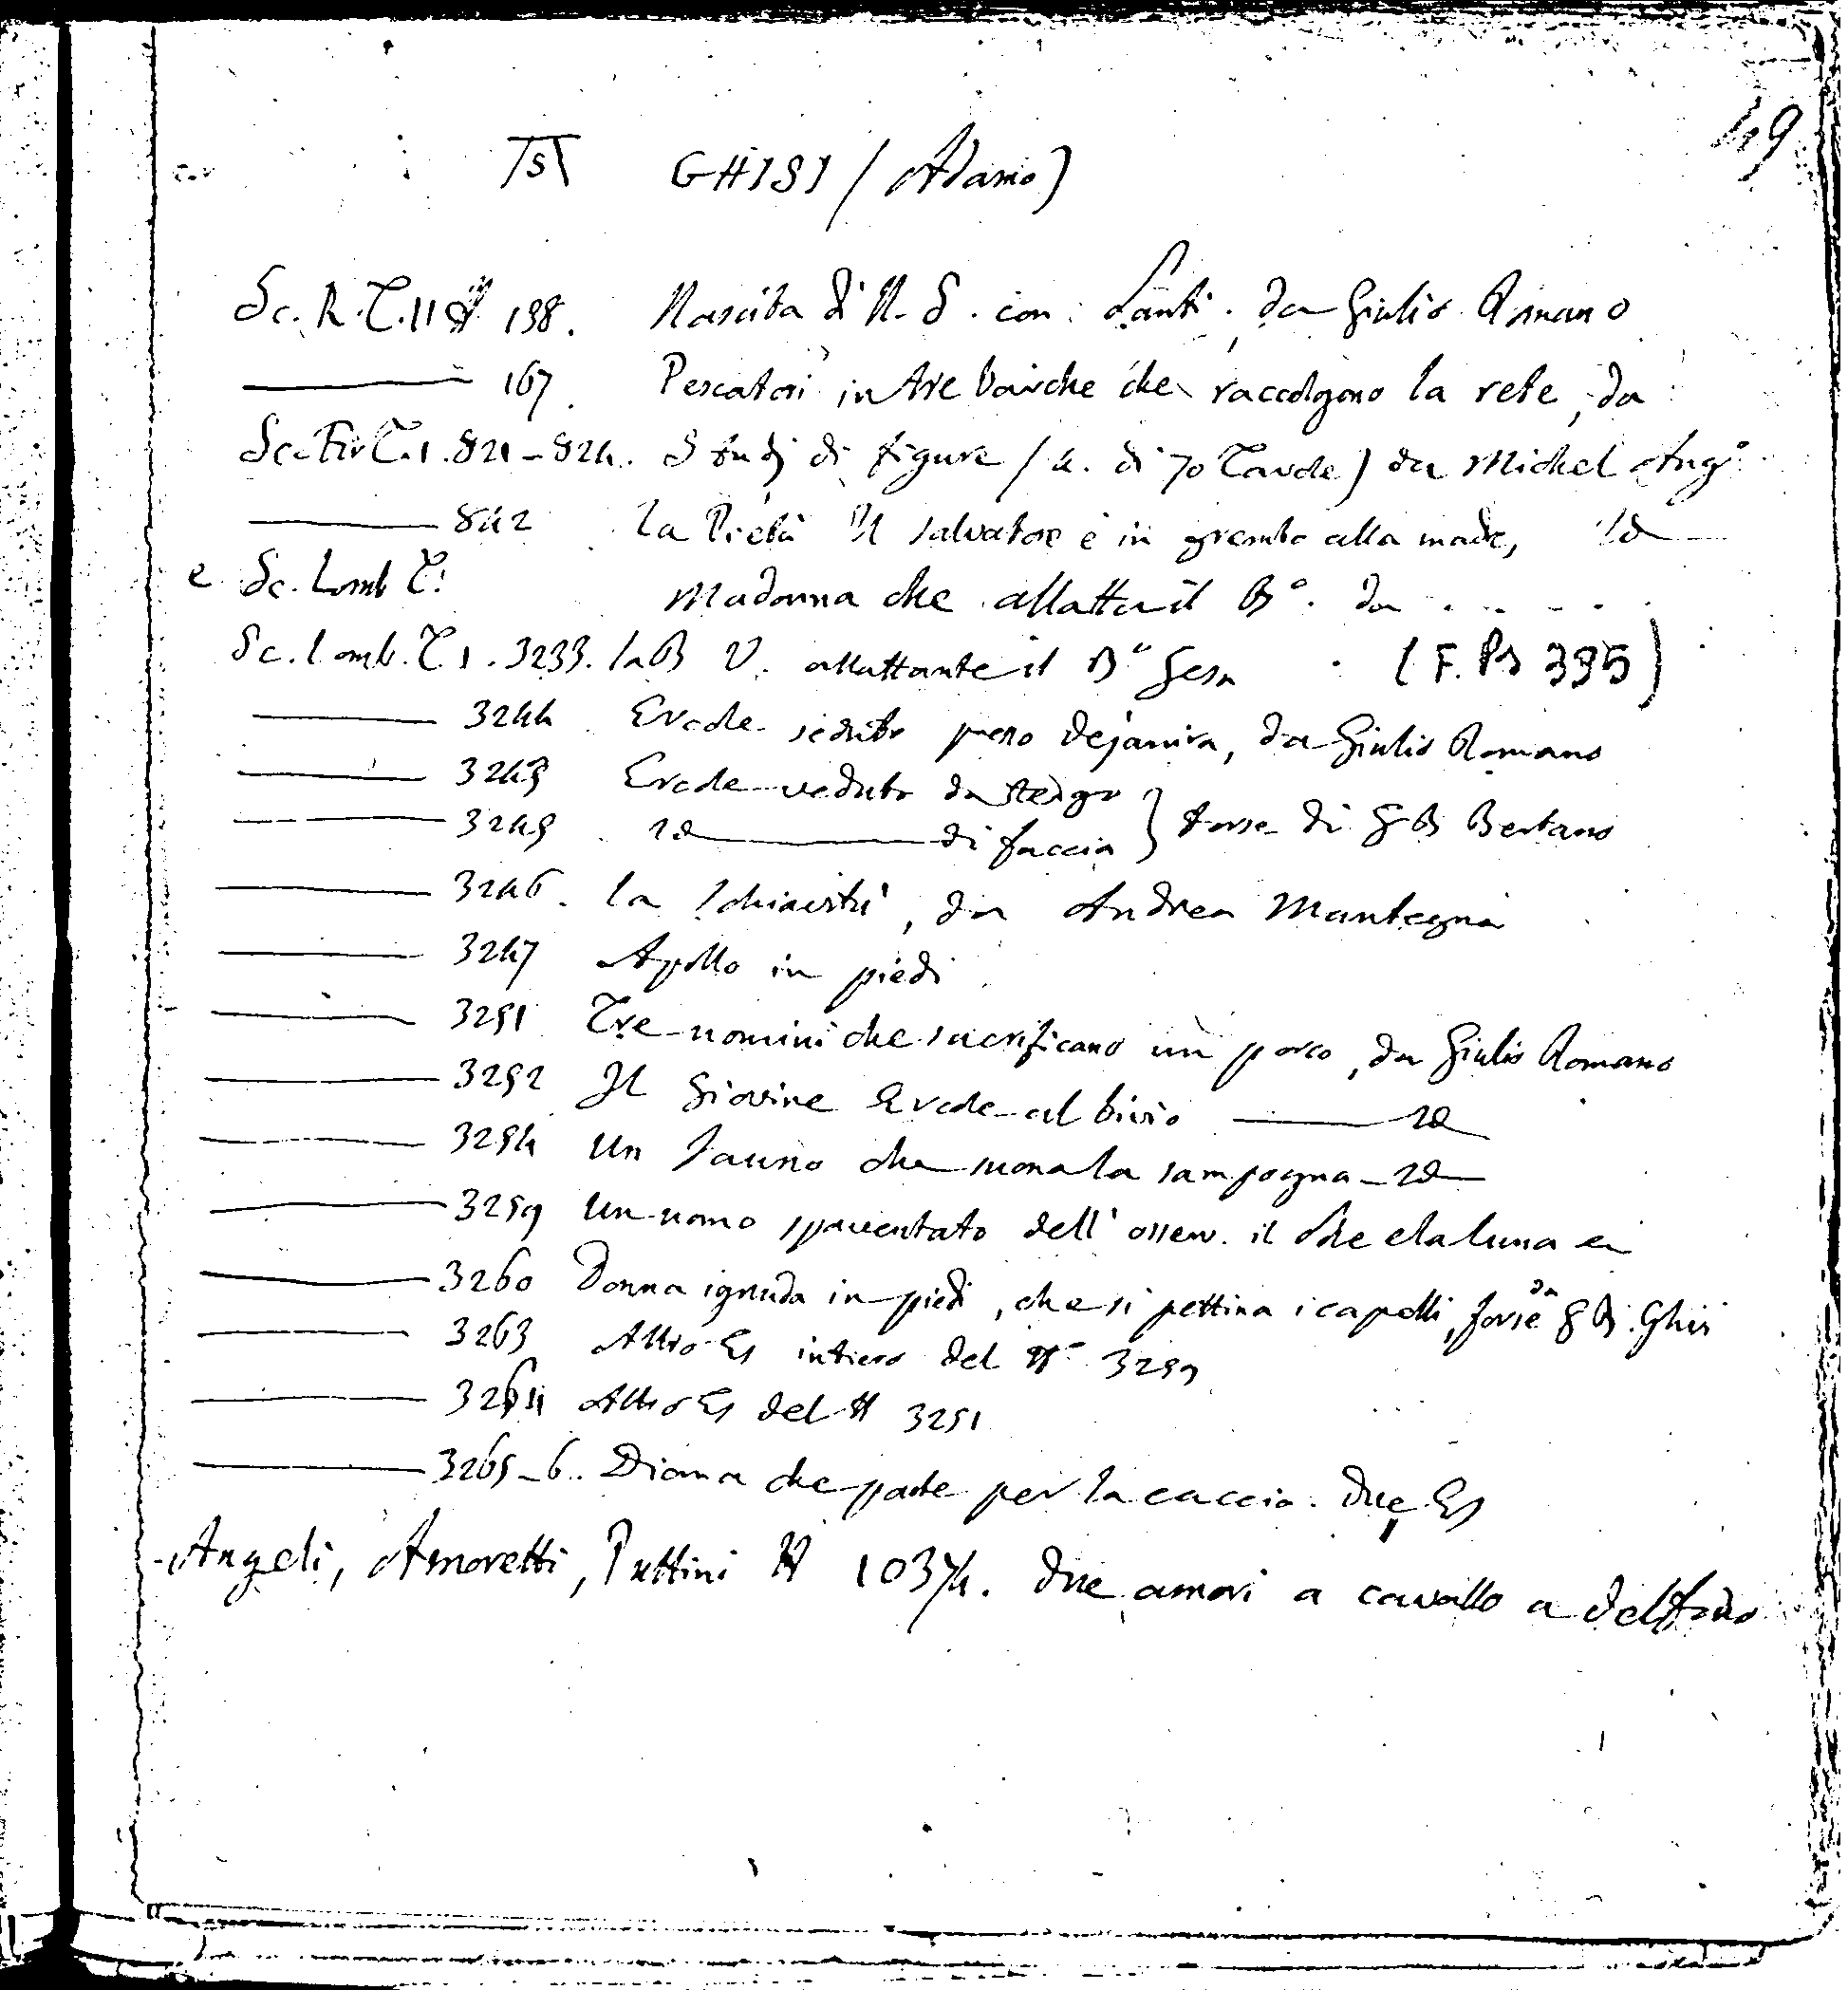 49
GHISI (Adamo)
Sc. R. T. II N 138. Nascita di N. S. con Santi, da Giulio Romano
——— 167 Pescatori in tre barche che raccolgono la rete, da
Sc. Fir T. 1. 821-824. Studj di figure (4. di 70 Tavole) da Michel Ang°
——— 842 La Pietà Il salvatore è in grembo alla madre, Id
e Sc. Lomb T. Madonna che allatta il B°. da . . . . .
Sc. Lomb. T 1. 3233. La B V. allattante il B° Gesu (F. Ps 395)
——— 3244 Ercole seduto presso Dejanira, da Giulio Romano
——— 3245 Ercole veduto da tergo } forse di G B Bertano
——— 3249 Id ——— di faccia
——— 3246. La Schiavitù, da Andrea Mantegna
——— 3247 Apollo in piedi
——— 3251 Tre uomini che sacrificano un porco, da Giulio Romano
——— 3252 Il Giovine Ercole al bivio ——— Id
——— 3254 Un Fauno che suona la sampogna - Id
——— 3259 Un uomo spaventato dell' osserv. il Sole e la luna
——— 3260 Donna ignuda in piedi, che si pettina i capelli, forse da G B. Ghisi
——— 3263 Altro Es intiero del N° 3259
——— 3264 Altro Es del N 3251
——— 3265-6. Diana che parte per la caccia. Due Es
Angeli, Amoretti, Puttini N 10374. Due amori a cavallo a delfino